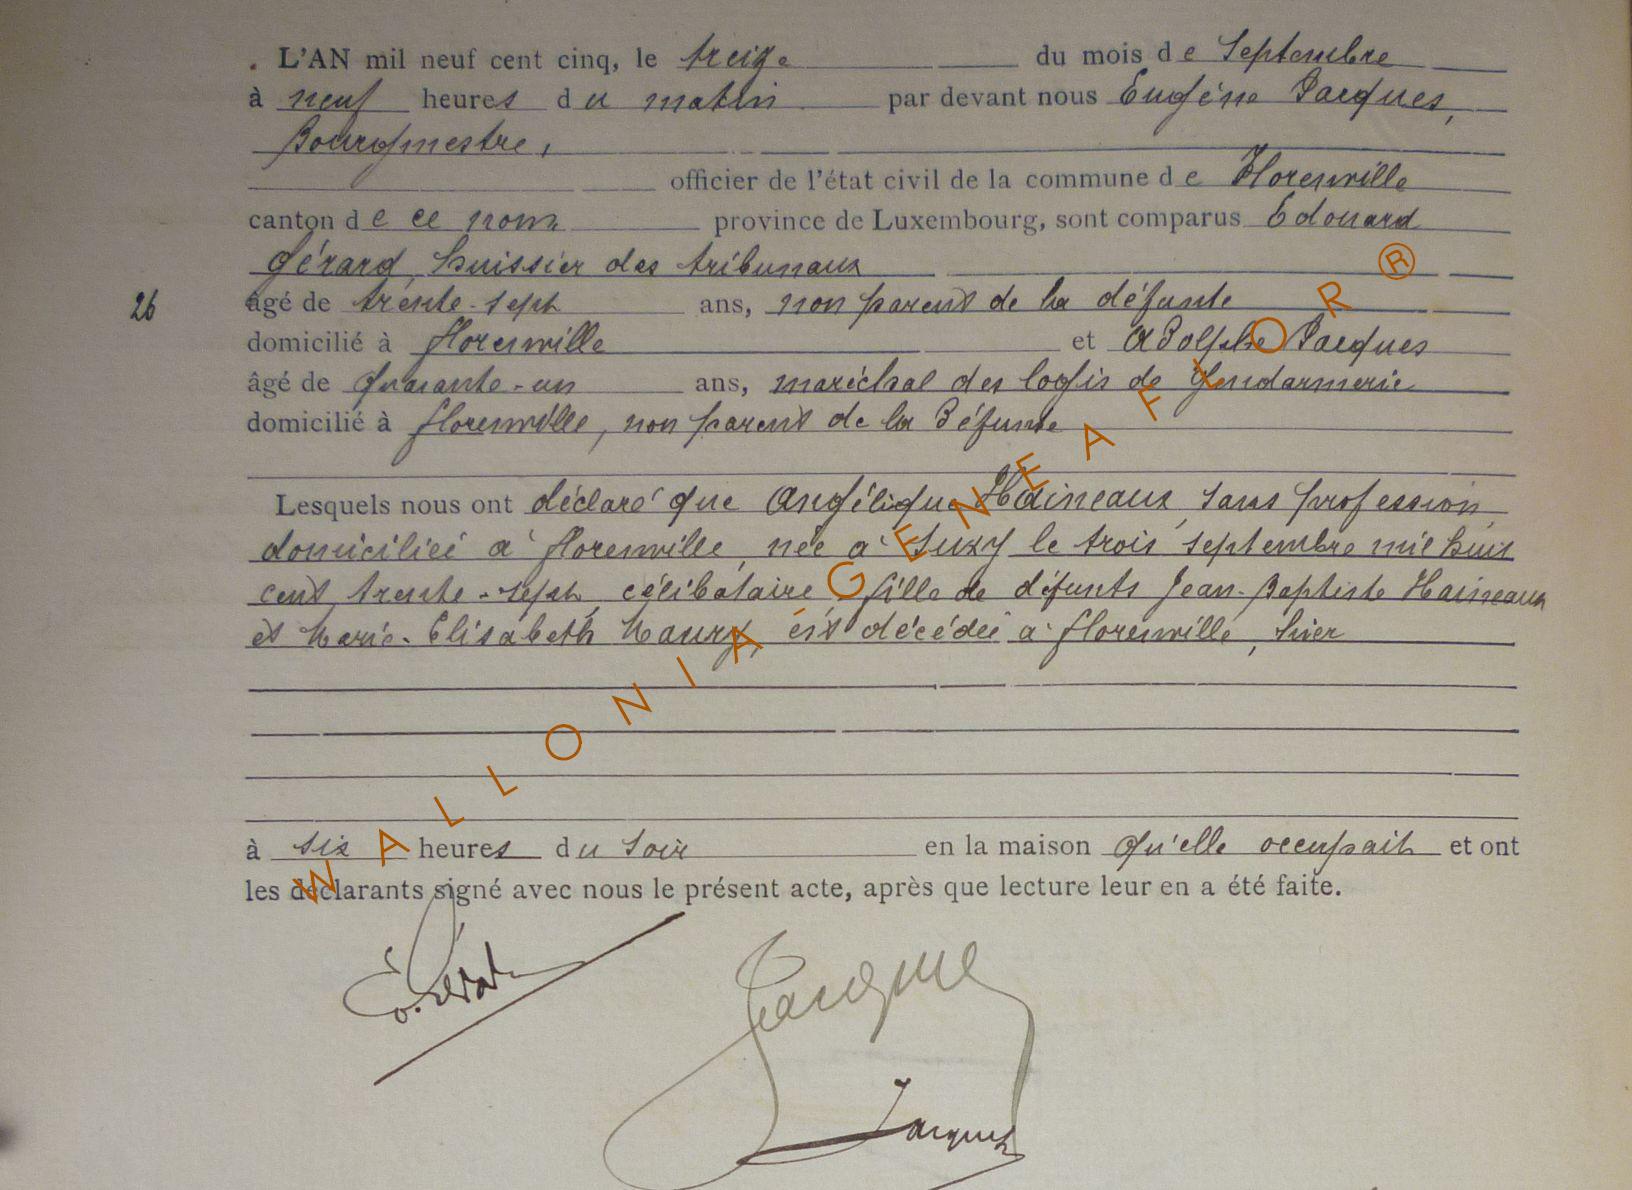 L'AN mil neuf cent cinq, le treize du mois de Septembre
à neuf heures du matin par devant nous Eugène Jacques,
Bourgmestre,
officier de l'état civil de la commune de Florenville
canton de ce nom province de Luxembourg, sont comparus Edouard
Gérard, huissier des tribunaux
26 âgé de trente-sept ans, non parent de la défunte
domicilié à florenville et Adolphe Jacques
âgé de quarante-un ans, maréchal des logis de gendarmerie
domicilié à florenville, non parent de la défunte
Lesquels nous ont déclaré que Angélique Haineaux, sans profession,
domiciliée à florenville, née à Suxy le trois septembre mil huit
cent trente-sept, célibataire, fille de défunts Jean-Baptiste Haineaux
et Marie-Elisabeth Maury, est décédée à florenville, hier
à six heures du soir en la maison qu'elle occupait et ont
les déclarants signé avec nous le présent acte, après que lecture leur en a été faite.
Jacques
Jacques
WALLONIA GENEAFLOR ®